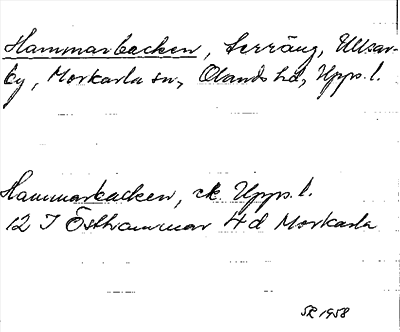 Hammarbacken, terräng, Ullsar-
by, Morkarla sn, Olands hd, Upps. l.
Hammarbacken, ek. Upps. l.
12 I Östhammar 4 d Morkarla
SR 1958